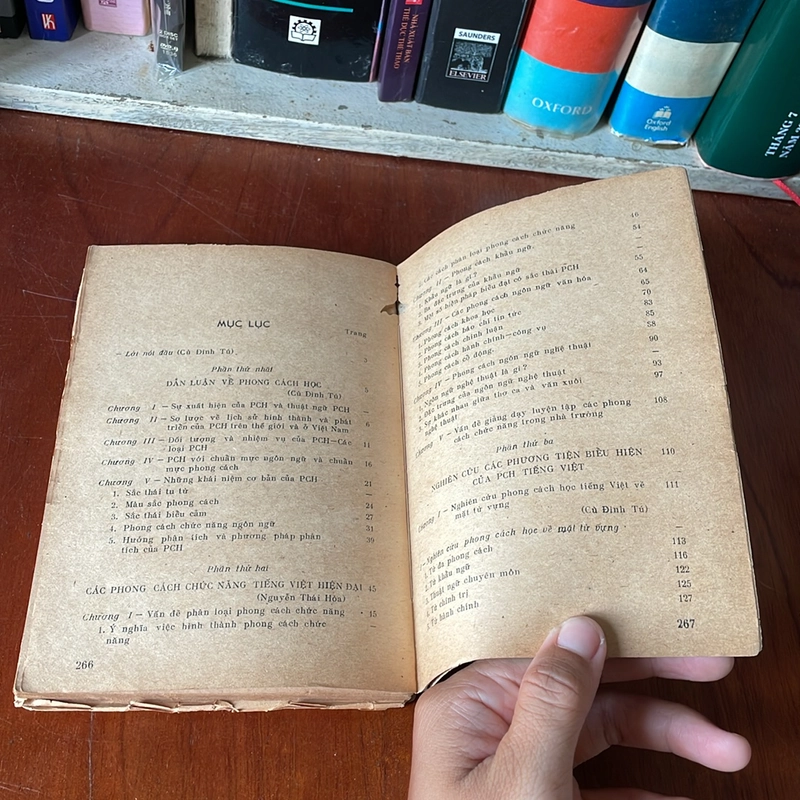 NHÀ XUẤT BẢN
THỂ DỤC THỂ THAO
SAUNDERS
ELSEVIER
OXFORD
Oxford
English
THÁNG 7
MỤC LỤC
Trang
– Lời nói đầu (Cù Đình Tú) 3
Phần thứ nhất
DẪN LUẬN VỀ PHONG CÁCH HỌC 5
(Cù Đình Tú)
Chương I – Sự xuất hiện của PCH và thuật ngữ PCH —
Chương II – Sơ lược về lịch sử hình thành và phát
triển của PCH trên thế giới và ở Việt Nam 6
Chương III – Đối tượng và nhiệm vụ của PCH–Các
loại PCH 11
Chương IV – PCH với chuẩn mực ngôn ngữ và chuẩn
mực phong cách 16
Chương V – Những khái niệm cơ bản của PCH 21
1. Sắc thái tu từ —
2. Màu sắc phong cách 24
3. Sắc thái biểu cảm 27
4. Phong cách chức năng ngôn ngữ 31
5. Hướng phân tích và phương pháp phân
tích của PCH 39
Phần thứ hai
CÁC PHONG CÁCH CHỨC NĂNG TIẾNG VIỆT HIỆN ĐẠI 45
(Nguyễn Thái Hòa)
Chương I – Vấn đề phân loại phong cách chức năng 45
1. Ý nghĩa việc hình thành phong cách chức
năng —
266
46
2. Các cách phân loại phong cách chức năng 54
Chương II – Phong cách khẩu ngữ. —
1. Khẩu ngữ là gì?
2. Đặc trưng của khẩu ngữ 55
3. Một số biện pháp biểu đạt có sắc thái PCH 64
Chương III – Các phong cách ngôn ngữ văn hóa 65
1. Phong cách khoa học 70
2. Phong cách báo chí tin tức 83
3. Phong cách chính luận 85
4. Phong cách hành chính–công vụ 58
5. Phong cách cổ động. 90
Chương IV – Phong cách ngôn ngữ nghệ thuật —
1. Ngôn ngữ nghệ thuật là gì? 93
2. Đặc trưng của ngôn ngữ nghệ thuật 97
3. Sự khác nhau giữa thơ ca và văn xuôi
nghệ thuật
Chương V – Vấn đề giảng dạy luyện tập các phong
cách chức năng trong nhà trường 108
Phần thứ ba
NGHIÊN CỨU CÁC PHƯƠNG TIỆN BIỂU HIỆN
CỦA PCH TIẾNG VIỆT 110
Chương I – Nghiên cứu phong cách học tiếng Việt về
mặt từ vựng 111
(Cù Đình Tú)
– Nghiên cứu phong cách học về mặt từ vựng —
1. Từ đa phong cách 113
2. Từ khẩu ngữ 116
3. Thuật ngữ chuyên môn 122
4. Từ chính trị 125
5. Từ hành chính 127
267